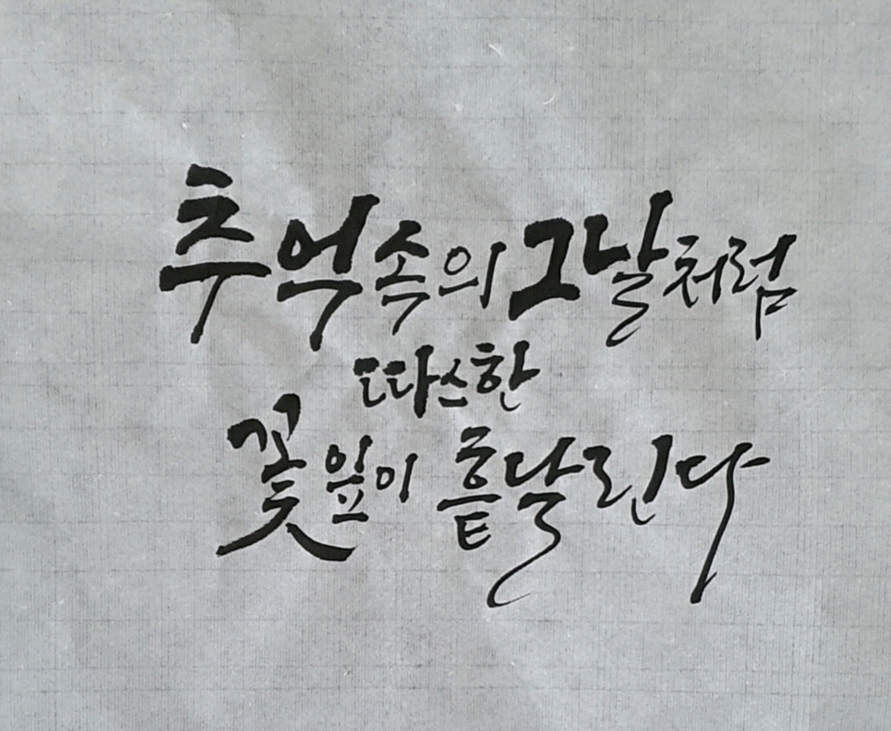 추억속의 그날처럼
따스한
꽃잎이 흩달린다